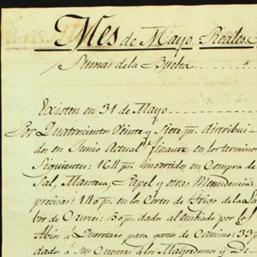 Mes de Mayo. Reales
Sumas de la Buelta
Existen en 31 de Mayo
Por Quatrocientos Veinte y Siete ps. distribui-
dos en Junio Actual, en los terminos
Siguientes: 16 ps. Invertidos en Compra de
Sal, Manteca, Papel y otras Menudencias
precisas: 180 ps. en los Cortes de Trigo de la La-
bor de 30 ps. dado al embiado por el
Abio a Queretaro para gastos de Camino: 33 ps.
dado á sus Cuentas á los Mayordomos y De-